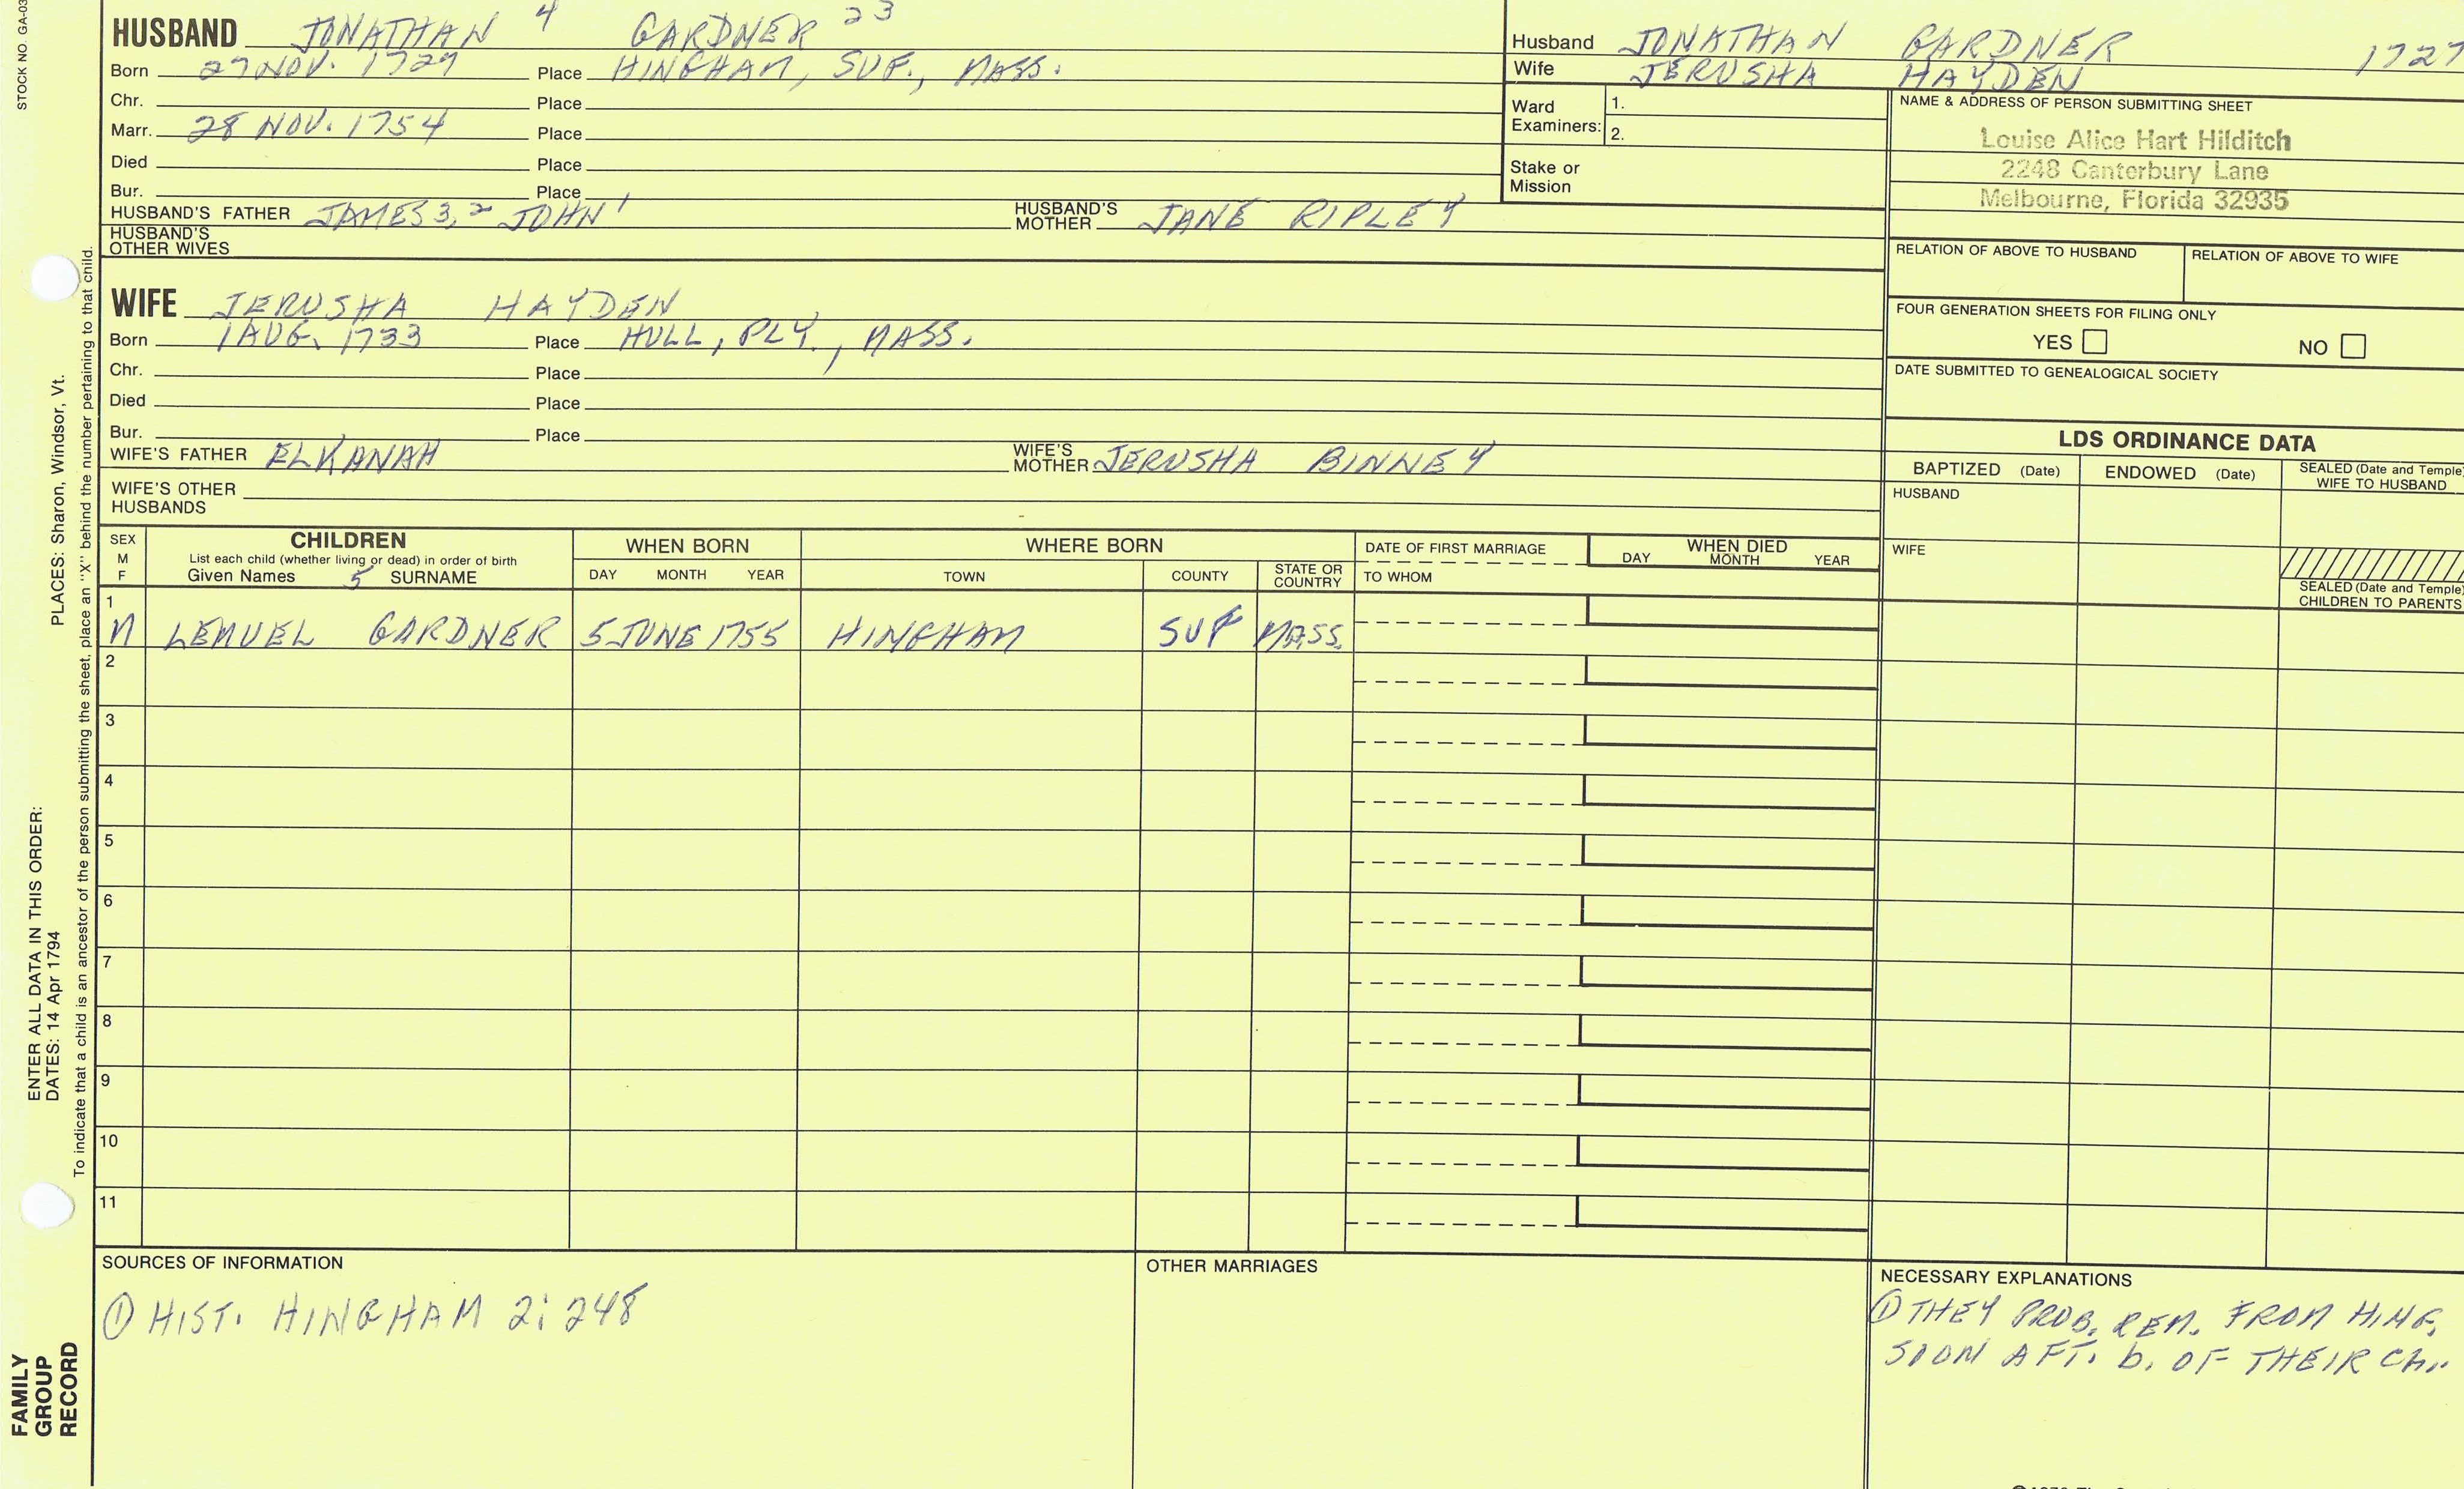 STOCK NO. GA-03
HUSBAND JONATHAN 4 GARDNER 23
Born 27 NOV. 1727 Place HINGHAM, SUF., MASS.
Chr. Place
Marr. 28 NOV. 1754 Place
Died Place
Bur. Place
HUSBAND'S FATHER JAMES 3, 2 JOHN 1 HUSBAND'S MOTHER JANE RIPLEY
HUSBAND'S OTHER WIVES
Husband JONATHAN GARDNER 1727
Wife JERUSHA HAYDEN
Ward Examiners: 1.
2.
Stake or Mission
NAME & ADDRESS OF PERSON SUBMITTING SHEET
Louise Alice Hart Hilditch
2248 Canterbury Lane
Melbourne, Florida 32935
RELATION OF ABOVE TO HUSBAND RELATION OF ABOVE TO WIFE
FOUR GENERATION SHEETS FOR FILING ONLY
YES NO
DATE SUBMITTED TO GENEALOGICAL SOCIETY
WIFE JERUSHA HAYDEN
Born 1 AUG. 1733 Place HULL, PLY., MASS.
Chr. Place
Died Place
Bur. Place
WIFE'S FATHER ELKANAH WIFE'S MOTHER JERUSHA BINNEY
WIFE'S OTHER HUSBANDS
LDS ORDINANCE DATA
BAPTIZED (Date) ENDOWED (Date) SEALED (Date and Temple) WIFE TO HUSBAND
HUSBAND
WIFE
SEALED (Date and Temple) CHILDREN TO PARENTS
SEX M F
CHILDREN
List each child (whether living or dead) in order of birth
Given Names 5 SURNAME
WHEN BORN
DAY MONTH YEAR
WHERE BORN
TOWN COUNTY STATE OR COUNTRY
DATE OF FIRST MARRIAGE
TO WHOM
WHEN DIED
DAY MONTH YEAR
1
M LEMUEL GARDNER 5 JUNE 1755 HINGHAM SUF MASS.
2
3
4
5
6
7
8
9
10
11
SOURCES OF INFORMATION
① HIST. HINGHAM 2:248
OTHER MARRIAGES
NECESSARY EXPLANATIONS
① THEY PROB. REM. FROM HING.
SOON AFT. b. OF THEIR Ch..
ENTER ALL DATA IN THIS ORDER:
DATES: 14 Apr 1794 PLACES: Sharon, Windsor, Vt.
To indicate that a child is an ancestor of the person submitting the sheet, place an "X" behind the number pertaining to that child.
FAMILY
GROUP
RECORD